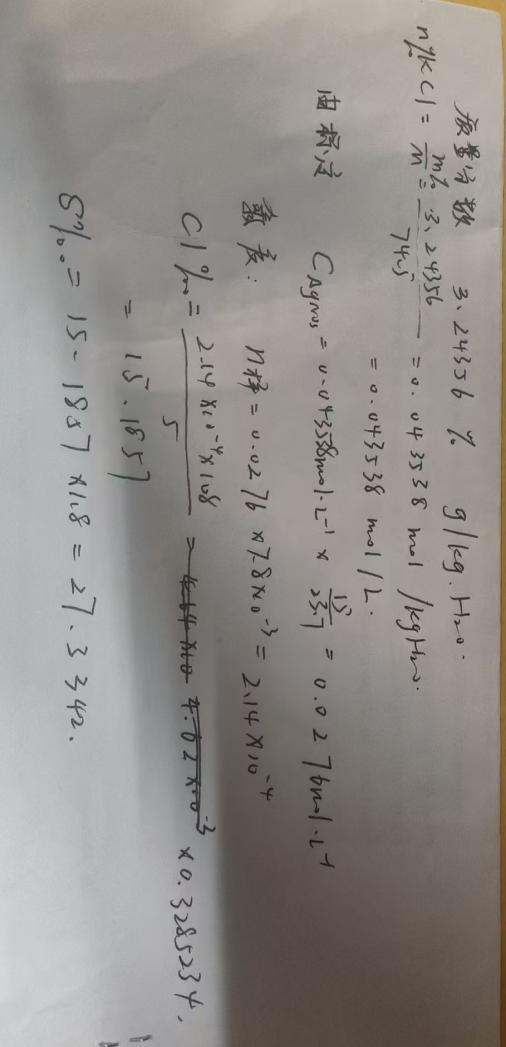 质量分数 3.24356 % g/kg·H₂O.
n%KCl = m%/M = 3.24356/74.5 = 0.043538 mol/kgH₂O.
= 0.043538 mol/L.
由标定 C AgNO₃ = 0.043538mol·L⁻¹ × 15/23.7 = 0.0276mol·L⁻¹
氯度: n样 = 0.0276 × 7.8×10⁻³ = 2.14×10⁻⁴
Cl‰ = 2.14×10⁻⁴×108/5 = × 0.3285234.
= 15.1857
S‰ = 15.1857 × 1.8 = 27.3342.